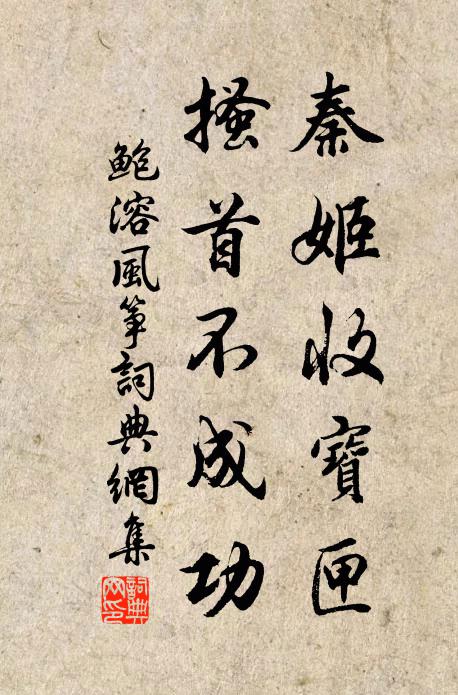 秦姬收寶匣
搔首不成功
鮑溶風筝詞典網集
詞典